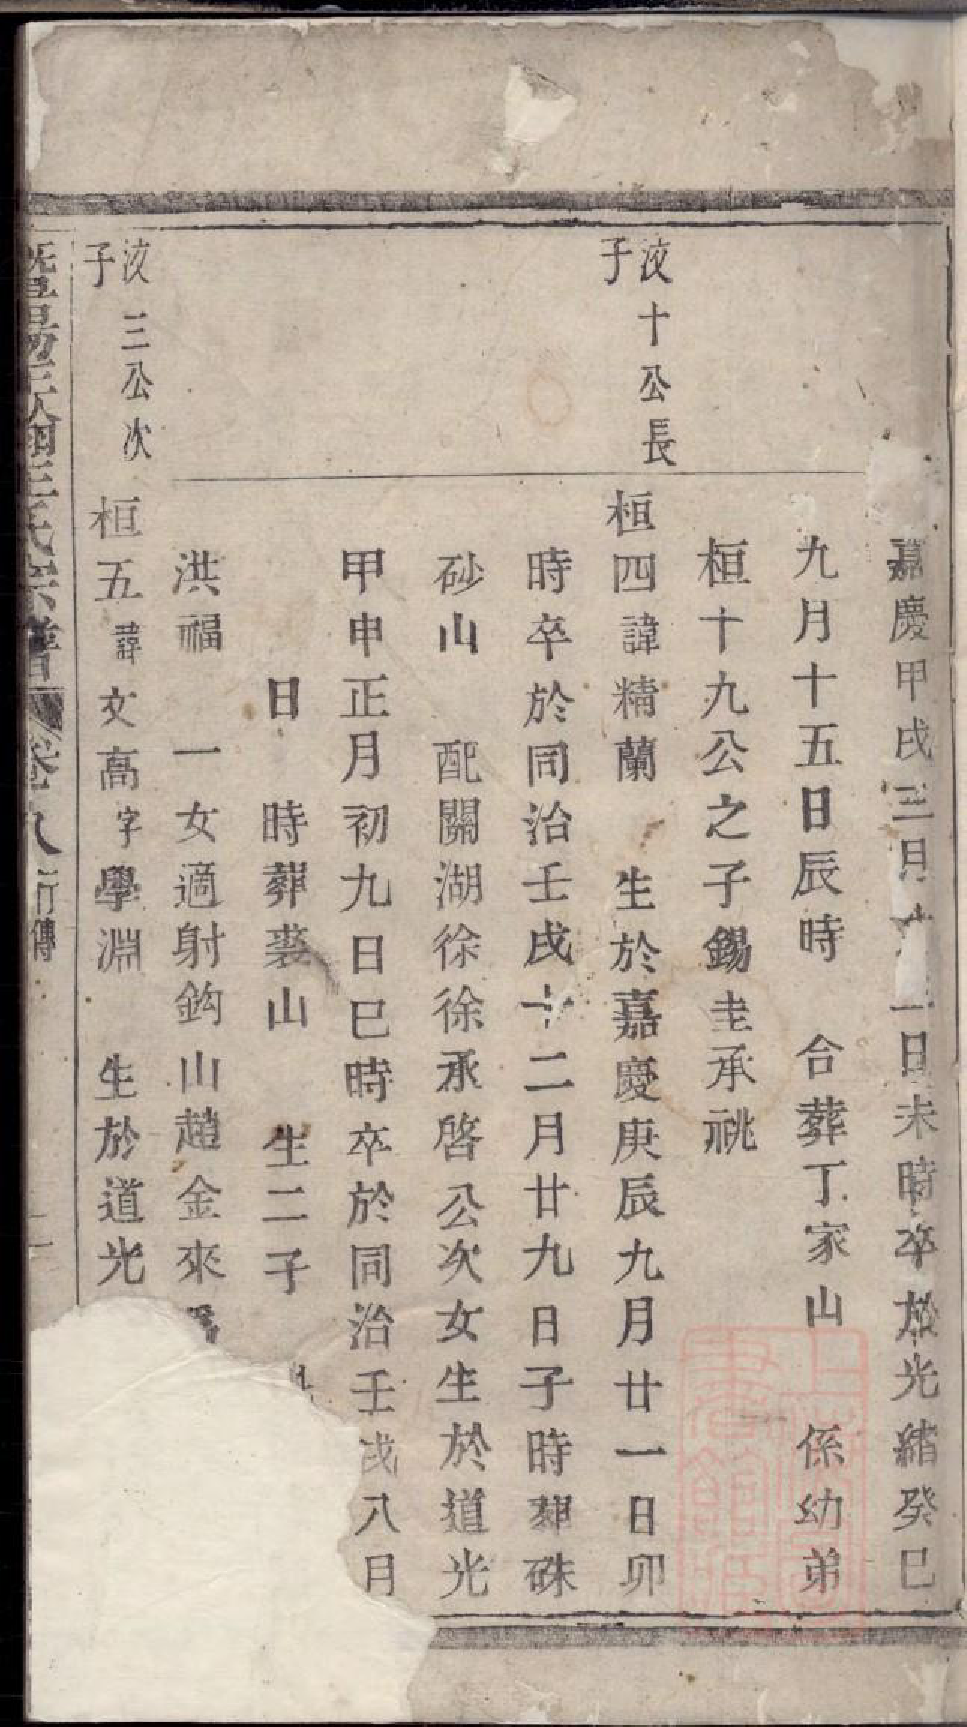 嘉慶甲戌三月十二日未時卒於光緒癸巳
九月十五日辰時 合葬丁家山 係幼弟
桓十九公之子錫圭承祧
汥十公長
子
桓四諱精蘭 生於嘉慶庚辰九月廿一日卯
時卒於同治壬戌十二月廿九日子時葬硃
砂山 配關湖徐徐承啓公次女生於道光
甲申正月初九日巳時卒於同治壬戌八月
日 時葬裘山 生二子
洪福 一女適射鈎山趙金來爲
汥三公次
子
桓五諱文高字學淵 生於道光
暨陽 王氏宗譜 卷八 行傳